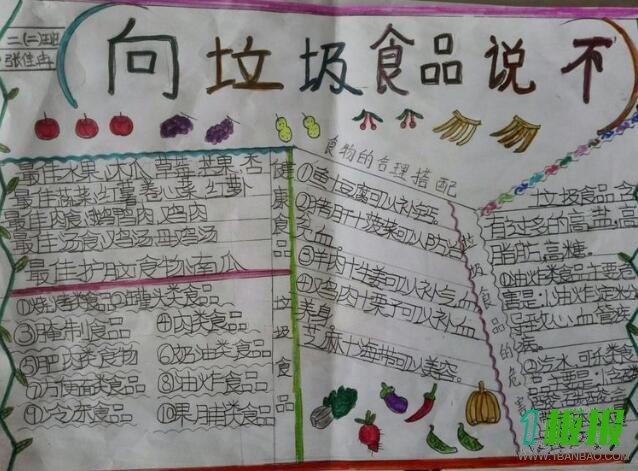 二(二)班
张佳冉
向垃圾食品说不
健康食品
最佳水果:木瓜 草莓 芒果 杏
最佳蔬菜:红薯 卷心菜 红萝卜
最佳肉食:鹅鸭肉 鸡肉
最佳汤食:鸡汤 母鸡汤
最佳护脑食物:南瓜
垃圾食品
①烧烤类食品 ②罐头类食品
③腌制食品 ④肉类食品
⑤肥肉类食物 ⑥奶油类食品
⑦方便面类食品 ⑧油炸食品
⑨冷冻食品 ⑩果脯类食品
食物的合理搭配
①鱼+豆腐可以补钙
②猪肝+菠菜可以防治
贫血。
③羊肉+生姜可以补气
④鸡肉+栗子可以补血
养身
芝麻+海带可以美容。
垃圾食品的危害
垃圾食品含
有过多的高盐、高
脂肪、高糖。
①油炸类食品主要危
害是:油炸定
导致心血管疾
病。
②汽水、可乐类食
1板报
WWW.1BANBAO.COM